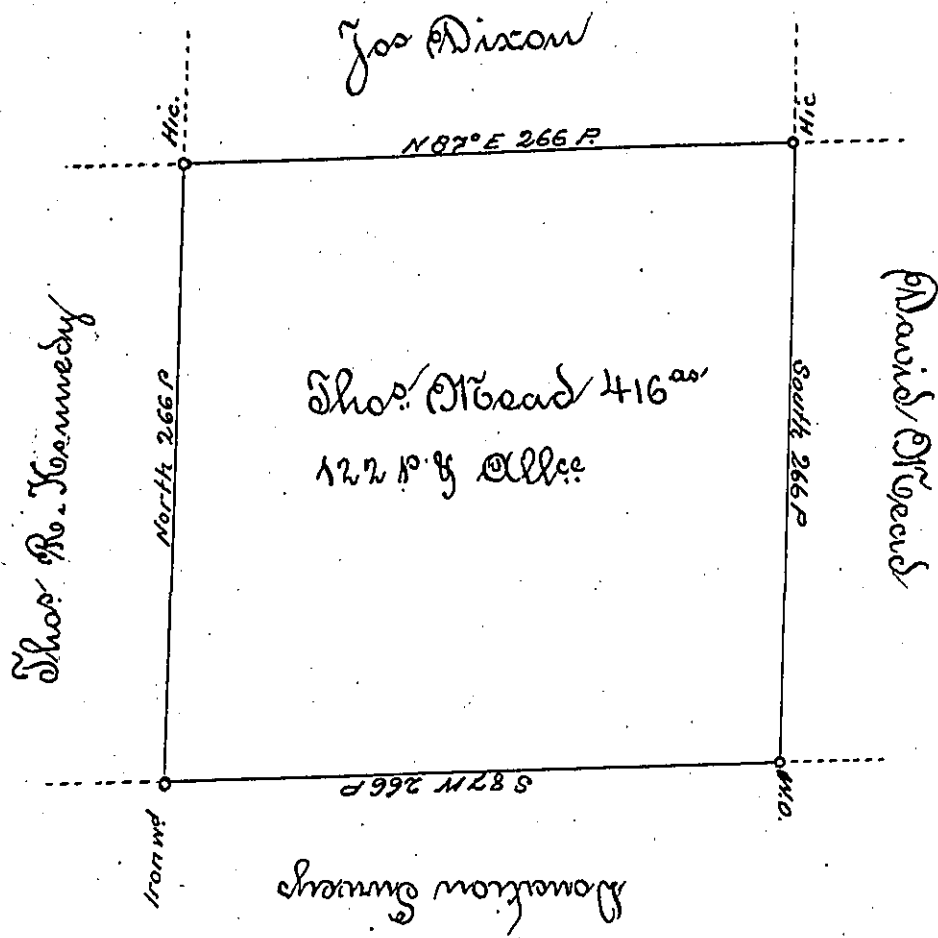 Jos Dixon
Hic.
Hic
N 87° E 266 P.
Thos. R. Kennedy
North 266 P
Thos. Mead 416 as
122 P. & Allce
South 266 P
David Mead
S 87 W 266 P
W.O.
Ironwd
Donation Surveys